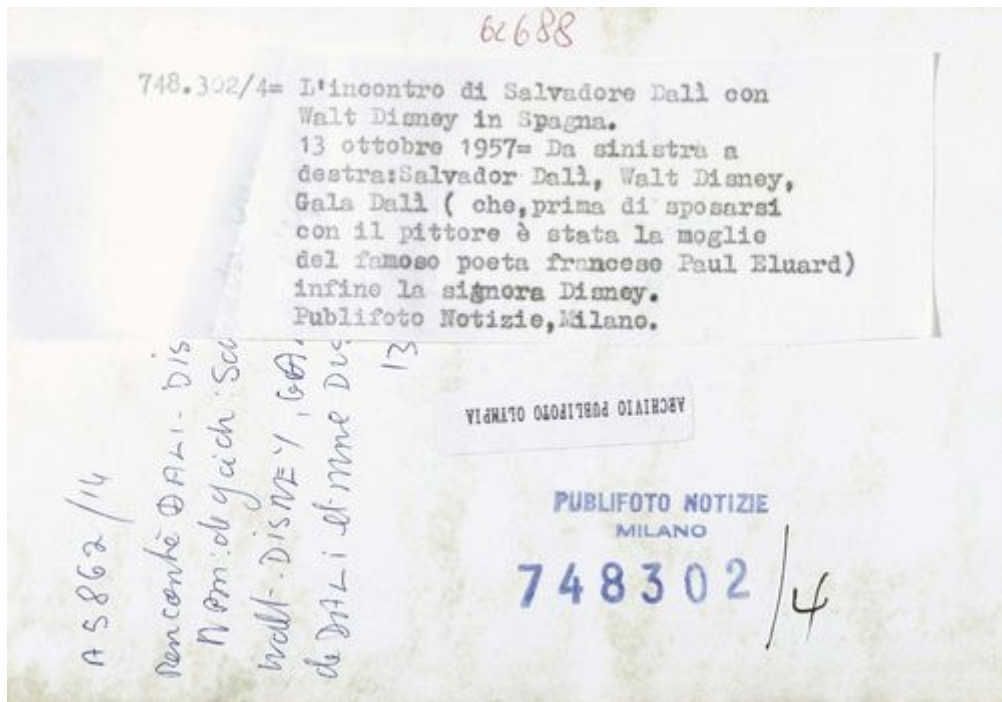 62688
748.302/4= L'incontro di Salvadore Dalì con
Walt Disney in Spagna.
13 ottobre 1957= Da sinistra a
destra:Salvador Dalì, Walt Disney,
Gala Dalì ( che,prima di sposarsi
con il pittore è stata la moglie
del famoso poeta francese Paul Eluard)
infine la signora Disney.
Publifoto Notizie,Milano.
ARCHIVIO PUBLIFOTO OLYMPIA
PUBLIFOTO NOTIZIE
MILANO
748302/4
AS862/14
Rencontre DALI-DIS
de
Walt-DISNEY,
de DALI et Mme
13